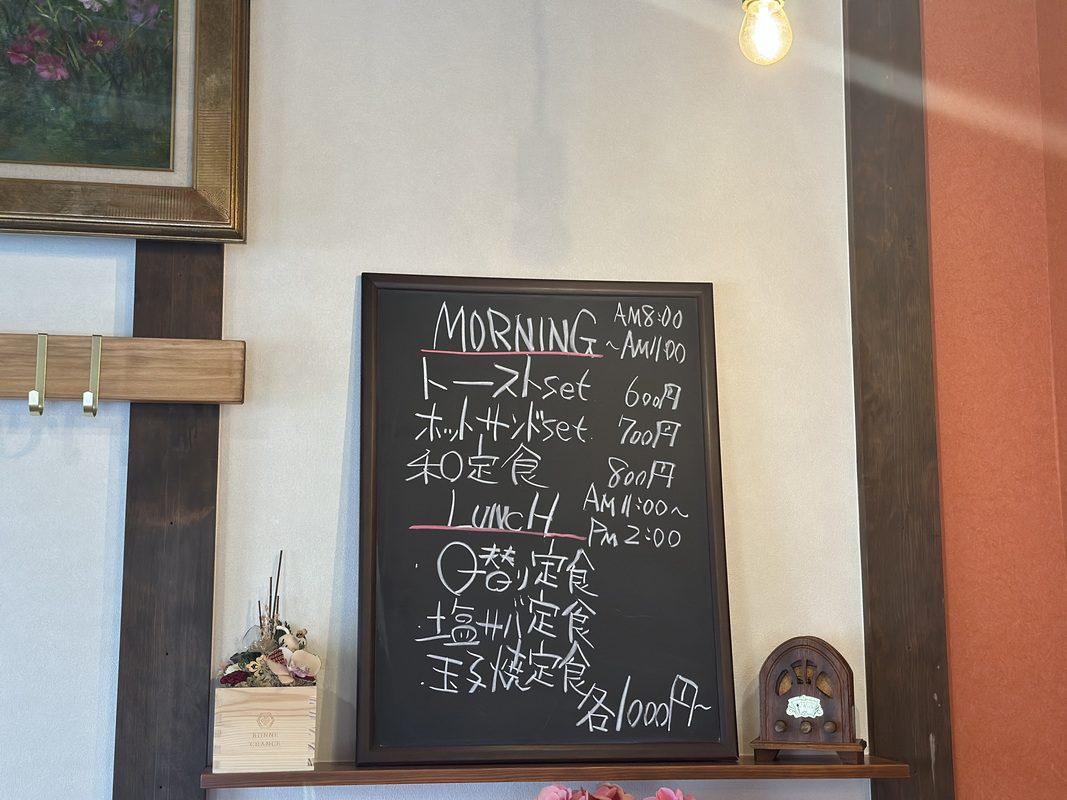 MORNING AM8:00
~AM11:00
トーストset 600円
ホットサンドset 700円
和定食 800円
LUNCH AM11:00~
PM2:00
・日替り定食
・塩サバ定食
・玉子焼定食
各1000円~
BONNE
CHANCE